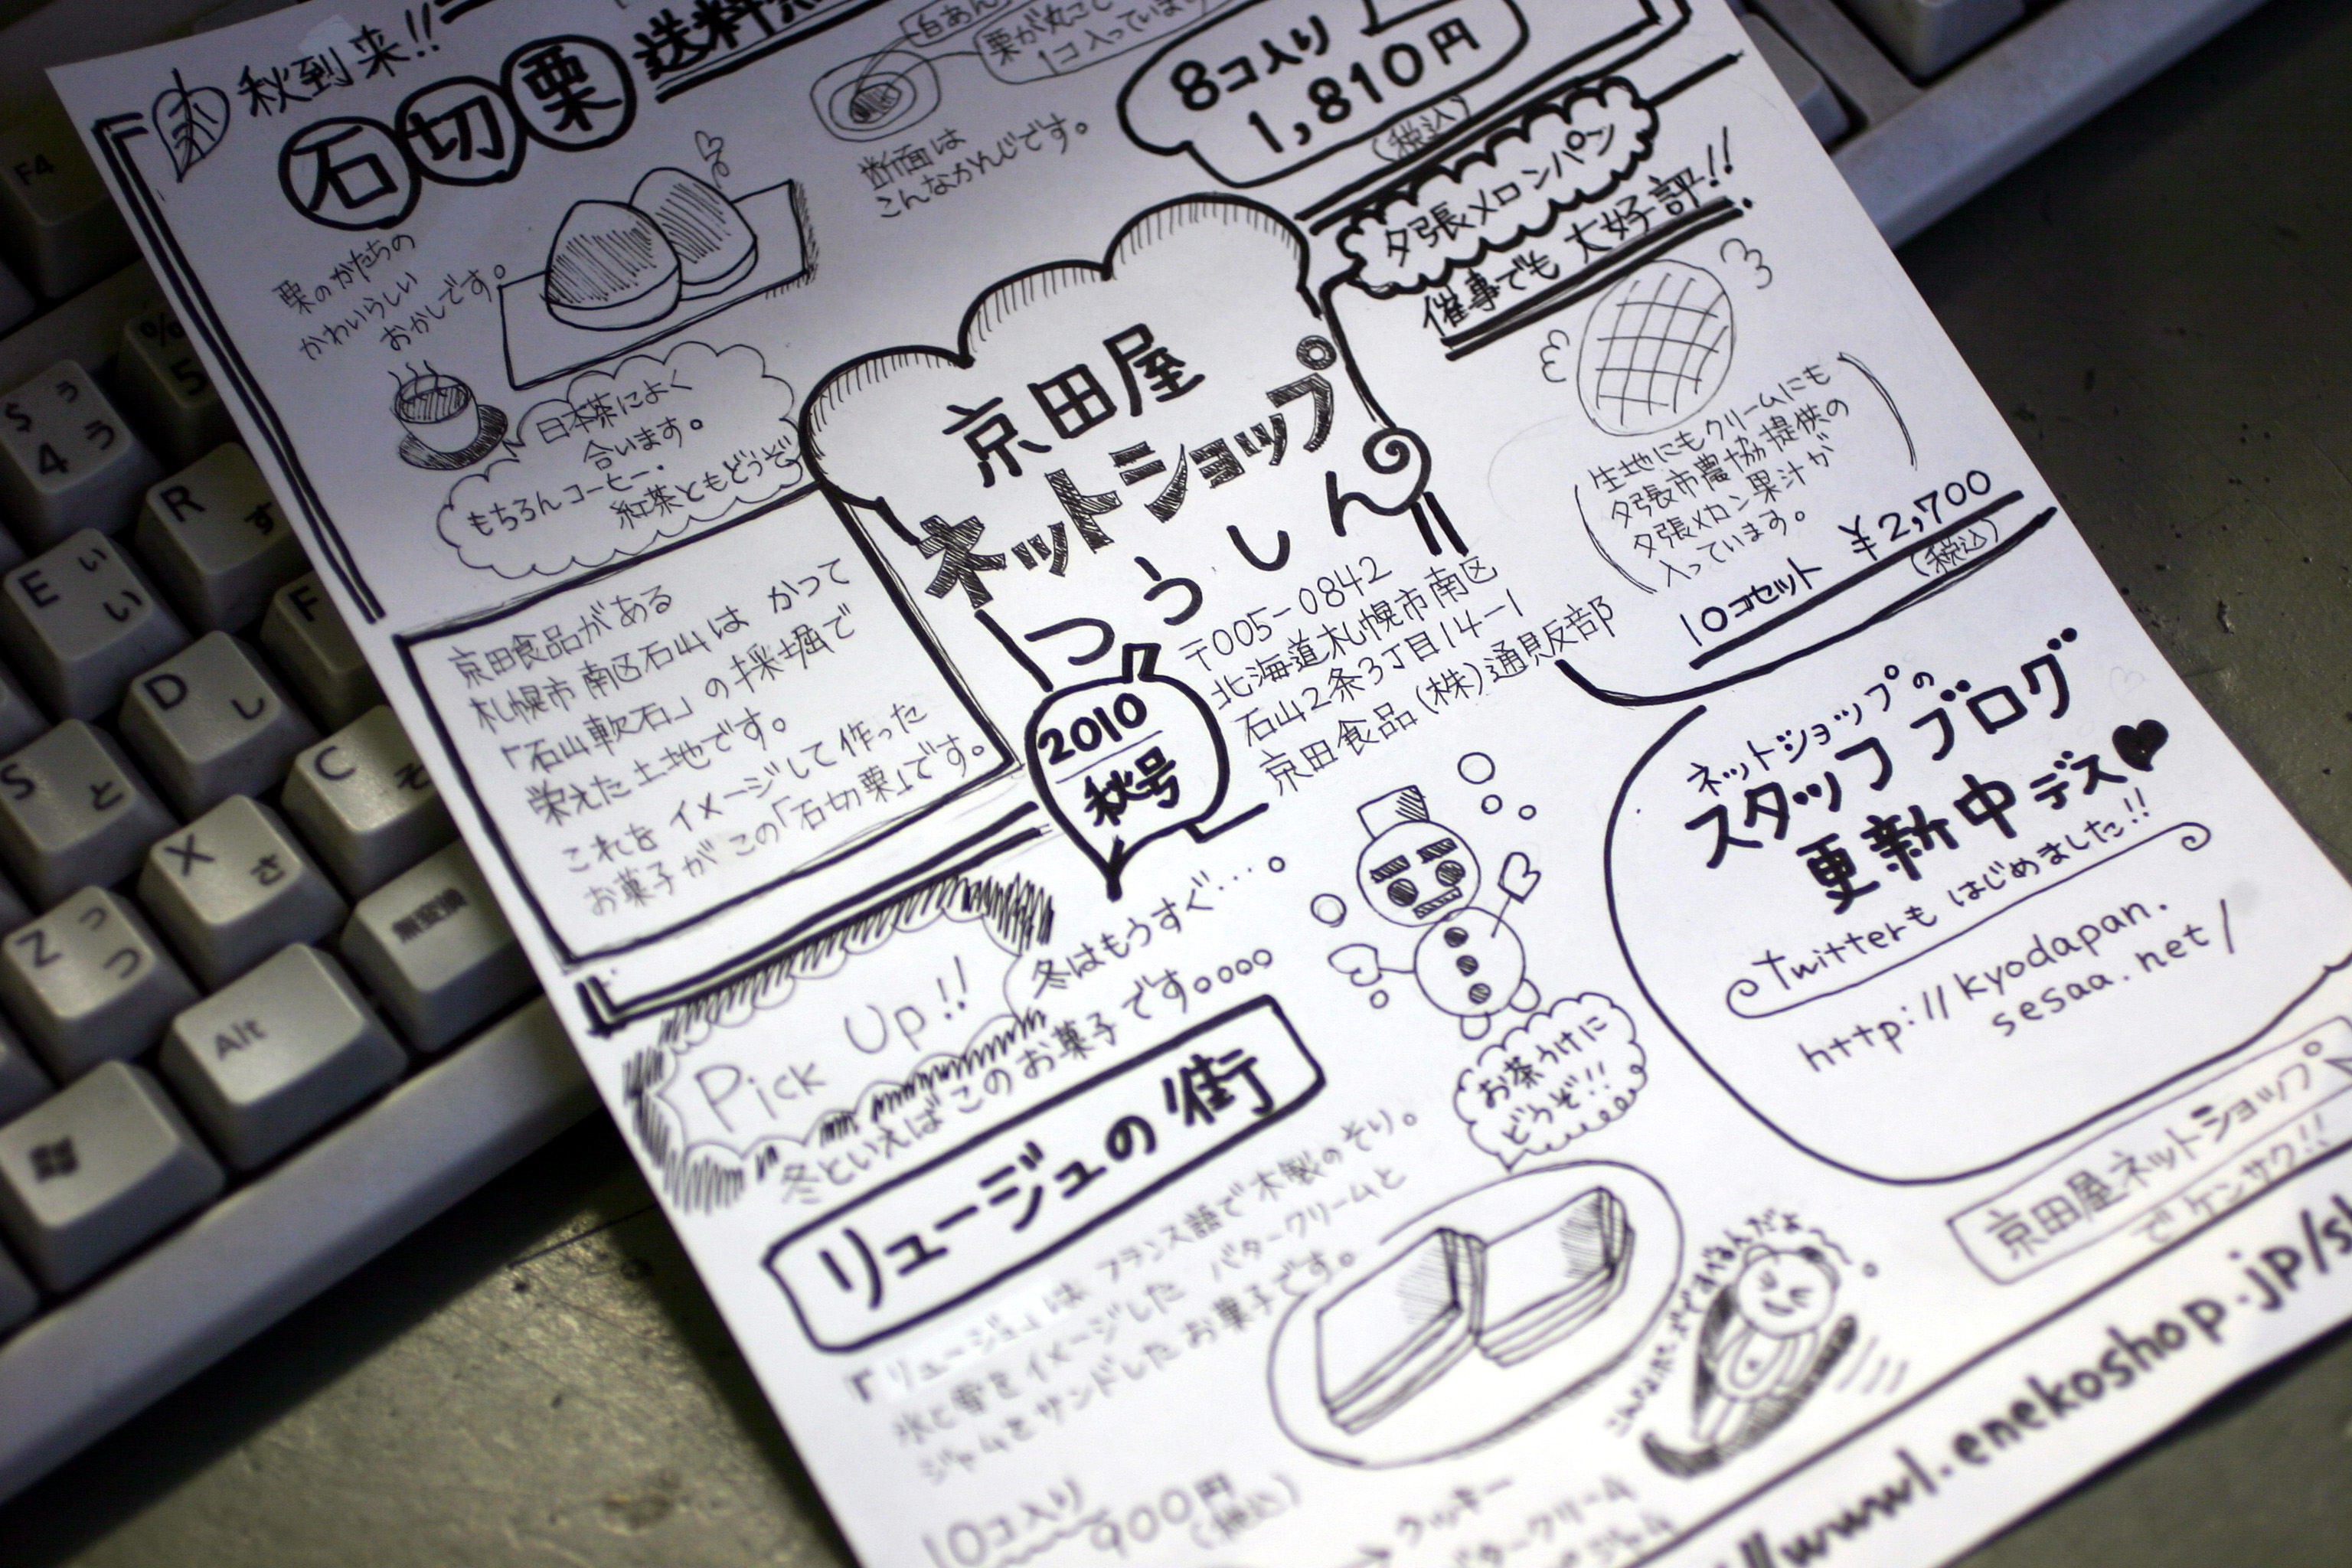 秋到来!!
石切栗
送料
白あん
栗が丸ごと
1コ入っています
断面は
こんなかんじです。
8コ入り
1,810円
(税込)
栗のかたちの
かわいらしい
おかしです。
日本茶によく
合います。
もちろんコーヒー・
紅茶ともどうぞ
京田食品がある
札幌市南区石山は かつて
「石山軟石」の採堀で
栄えた土地です。
これをイメージして作った
お菓子がこの「石切栗」です。
京田屋
ネットショップ
つうしん
2010
秋号
〒005-0842
北海道札幌市南区
石山2条3丁目14-1
京田食品(株)通販部
夕張メロンパン
催事でも大好評!!
生地にもクリームにも
夕張市農協提供の
夕張メロン果汁が
入っています。
10コセット ¥2,700
(税込)
ネットショップの
スタッフブログ
更新中デス♥
Twitterもはじめました!!
http://kyodapan.
sesaa.net/
Pick Up!!
冬はもうすぐ…。
冬といえばこのお菓子です。。。。
リュージュの街
「リュージュ」は フランス語で木製のそり。
氷と雪をイメージした バタークリームと
ジャムをサンドしたお菓子です。
10コ入り
900円
(税込)
お茶うけに
どうぞ!!
クッキー
バタークリーム
京田屋ネットショップ
でケンサク!!
//www1.enekoshop.jp/s
F4
%
5
$
4
う
R
す
E
い
F
D
し
C
そ
S
と
X
さ
Z
つ
無変換
Alt